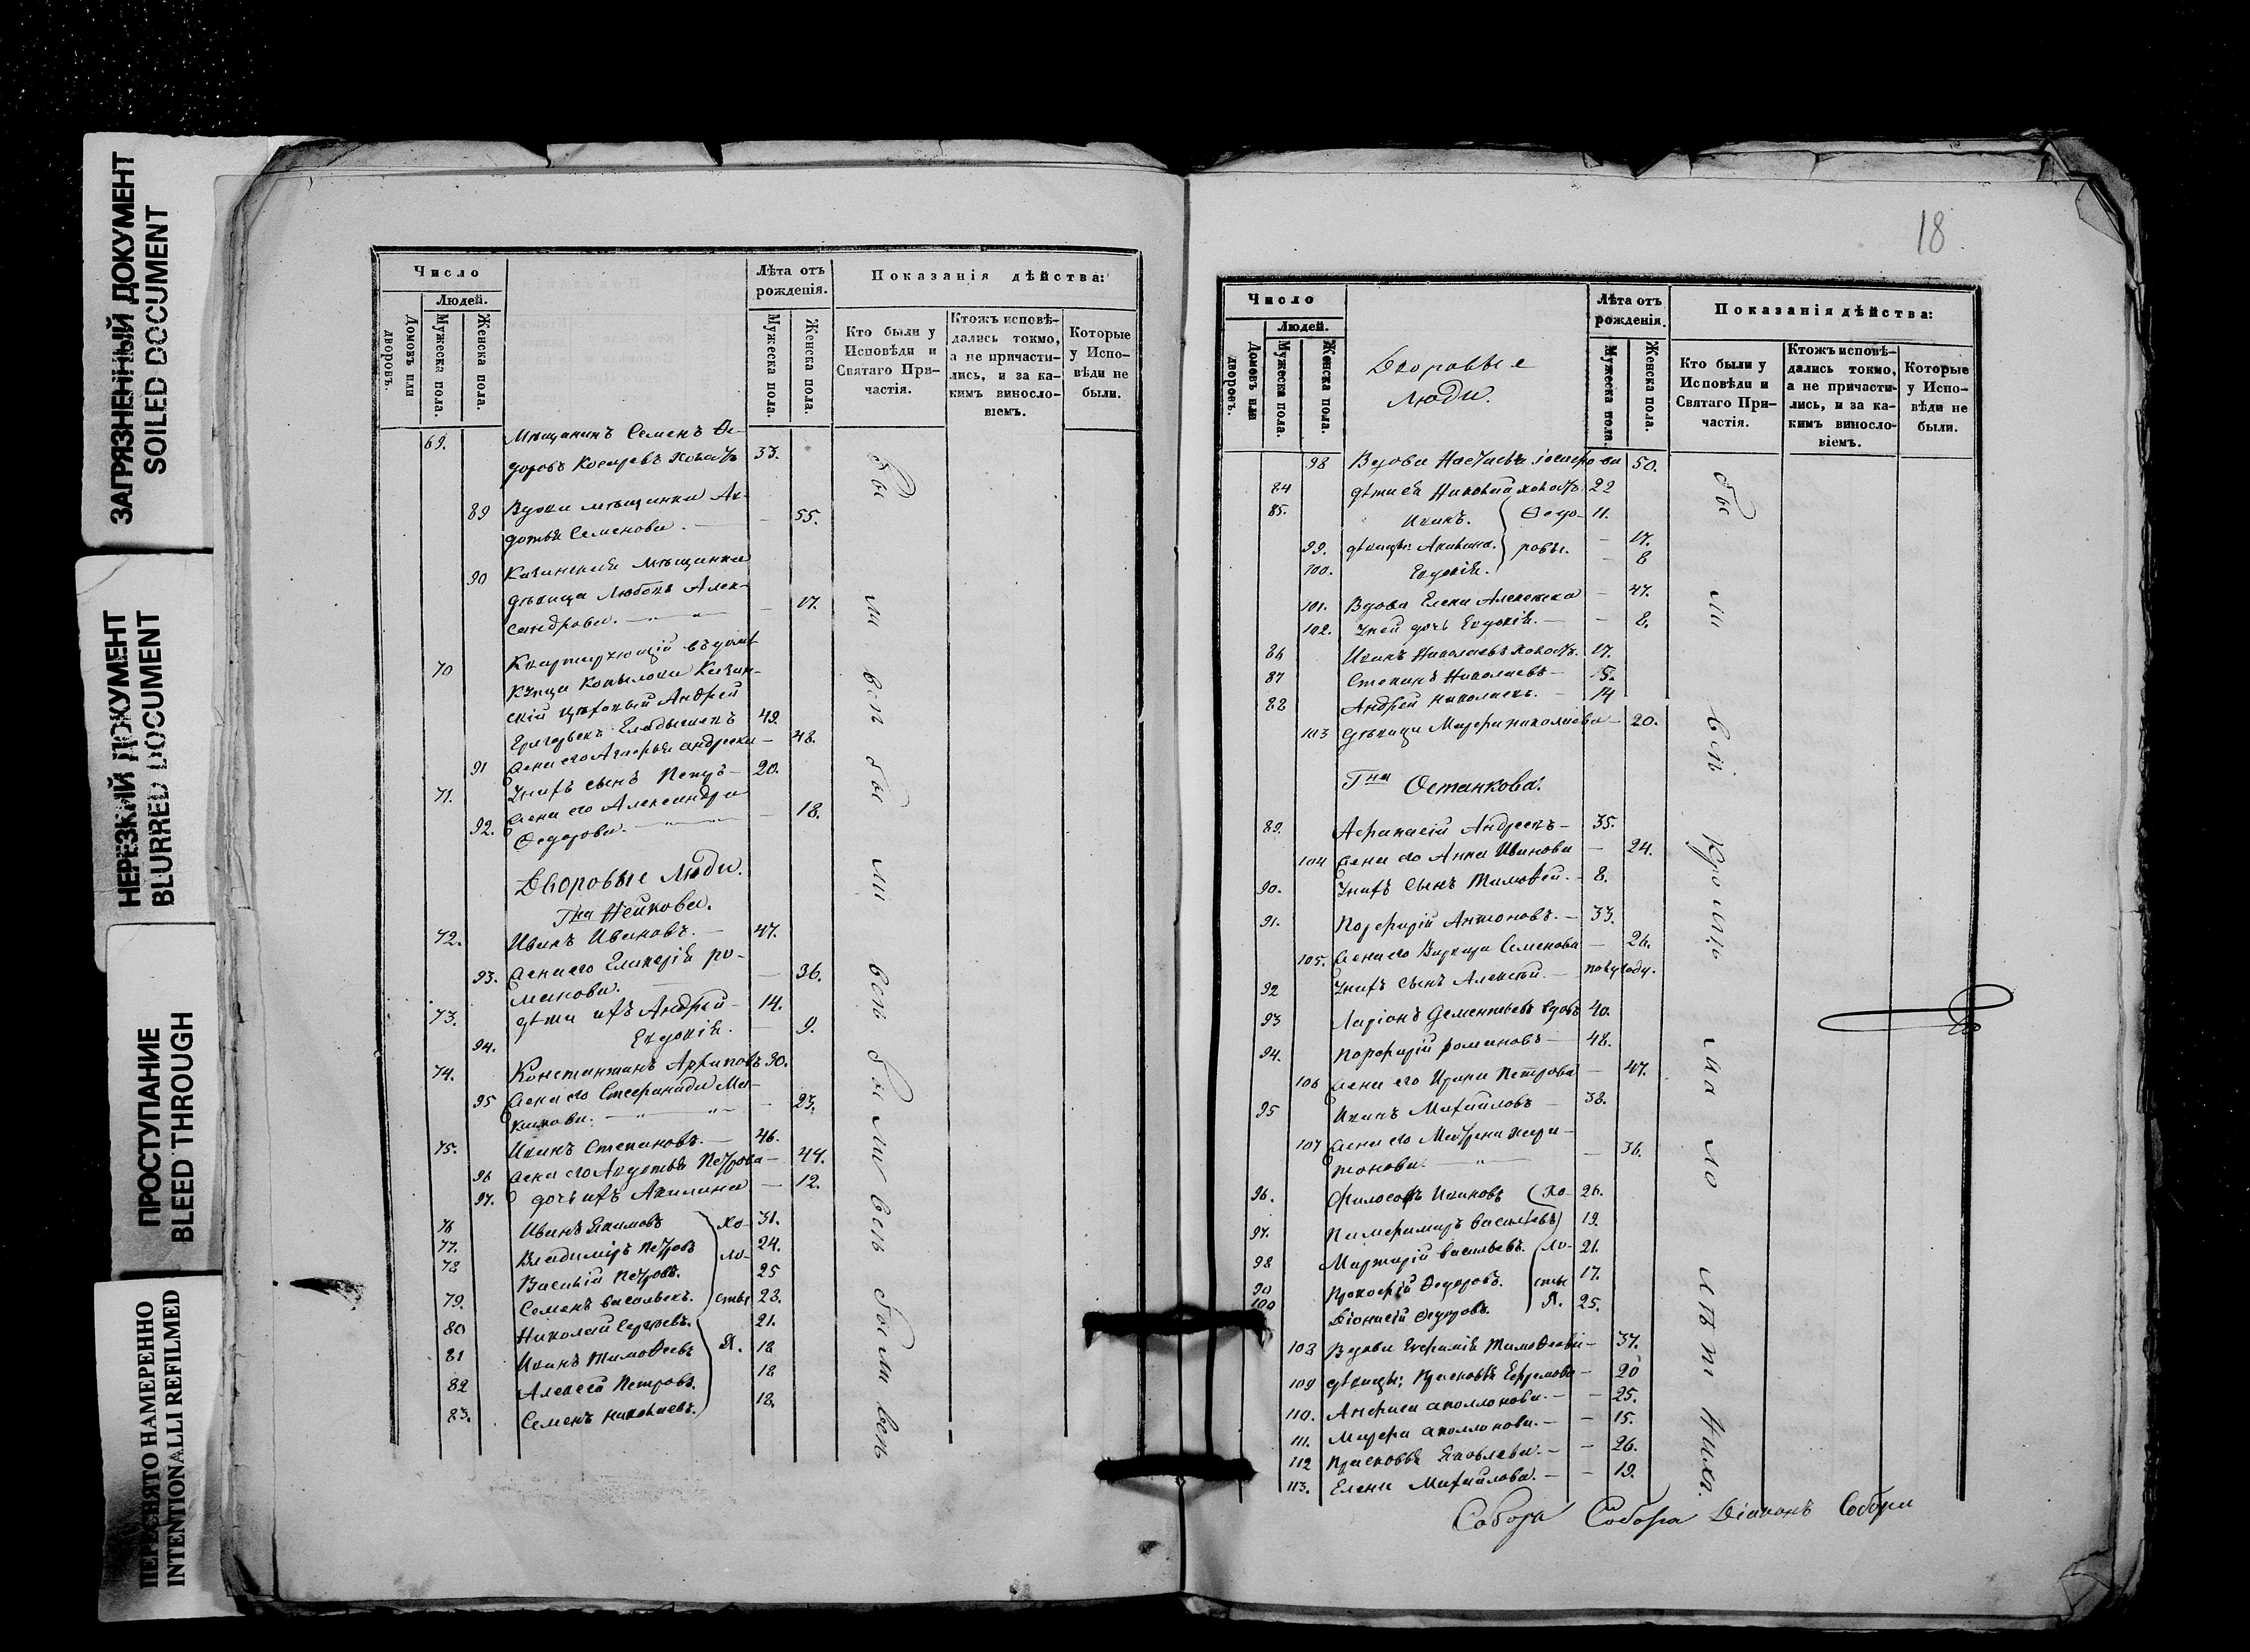 ЗАГРЯЗНЕННЫЙ ДОКУМЕНТ
SOILED DOCUMENT
НЕРЕЗКИЙ ДОКУМЕНТ
BLURRED DOCUMENT
ПРОСТУПАНИЕ
BLEED THROUGH
ПЕРЕСНЯТО НАМЕРЕННО
INTENTIONALLI REFILMED
Число
Людей.
Домовъ или дворовъ.
Мужеска пола.
Женска пола.
Лѣта отъ рожденія.
Мужеска пола.
Женска пола.
Показанія дѣйства:
Кто были у Исповѣди и Святаго Причастія.
Ктожъ исповѣдались токмо, а не причастились, и за какимъ винословіемъ.
Которые у Исповѣди не были.
69. Мѣщанинъ Семенъ Ѳе-
доровъ Косыревъ Холостъ 33.
89 Вдова мѣщанка Ав-
дотья Семенова. 55.
90 Казанская Мѣщанка
дѣвица Любовь Алек-
сандрова. 17.
70 Квартирующій въ домѣ
Купца Копылова Казан-
скій Цѣховый Андрей
Григорьевъ 49.
91 Жена его Андреева 48.
71. У нихъ сынъ Петръ 20.
92. Жена его Александра
Ѳедорова. 18.
Дворовые Люди.
Гна Пейкова.
72. Иванъ Ивановъ. 47.
93. Жена его Гликерія Ро-
манова. 36.
73. дѣти ихъ Андрей 14.
94. Евдокія. 9.
74. Константинъ Архиповъ 30.
95 Жена его Стефанида Ма-
кимова. 23.
75. Иванъ Степановъ. 46.
96 Жена его Авдотья Петрова 44.
97. дочь ихъ Акилина 12.
76 Иванъ Якимовъ Хо- 31.
77. Владиміръ Петровъ ло- 24.
78 Василій Петровъ. 25
79. Семенъ Васильевъ. стыя 23.
80 Николай Сергѣевъ. 21.
81 Иванъ Тимоѳеевъ я. 18
82 Алексѣй Петровъ. 18
83. Семенъ Николаевъ. 18.
бы ли вси бы ли вси бы ли вси бы ли вси
18
Число
Людей.
Домовъ или дворовъ.
Мужеска пола.
Женска пола.
Дворовые
Люди.
Лѣта отъ рожденія.
Мужеска пола.
Женска пола.
Показанія дѣйства:
Кто были у Исповѣди и Святаго Причастія.
Ктожъ исповѣдались токмо, а не причастились, и за какимъ винословіемъ.
Которые у Исповѣди не были.
98 Вдова Настасья Іосифова 50.
84 дѣти ея Николай холостъ. 22
85. Иванъ. Ѳедо- 11.
99. дѣвицы: Акилина. ровы. 17.
100. Евдокія. 8
101. Вдова Елена Алексѣева 47.
102. У ней дочь Евдокія. 8.
86 Иванъ Николаевъ холостъ. 17.
87 Степанъ Николаевъ 15.
88 Андрей Николаевъ. 14
103 дѣвица Марфа Николаева 20.
Гна Останкова.
89. Афанасій Андреевъ 35.
104 Жена его Анна Иванова 24.
90. У нихъ сынъ Тимоѳей. 8.
91. Порфирій Антоновъ. 33.
105. Жена его Варвара Семенова 26.
92 У нихъ сынъ Алексѣй. полугоду.
93 Ларіонъ Дементьевъ вдовъ 40.
94. Порфирій Романовъ 48.
106 Жена его Ирина Петрова 47.
95 Иванъ Михайловъ 38.
107 Жена его Матрена Хари-
тонова. 36.
96. Философъ Ивановъ Хо- 26.
97. Васильевъ 19.
98 Мартирій Васильевъ. ло- 21.
99 Прокофій Ѳедоровъ. стыя 17.
100 Діонисій Ѳедоровъ. я. 25.
108 Вдова Евфимія Тимоѳеева 37.
109 дѣвицы: Прасковья Ефремова 20
110. Анфиса Аполлонова. 25.
111. Марфа Аполлонова. 15.
112 Прасковья Яковлева. 26.
113. Елена Михайлова. 19.
бы ли вси кромѣ ма ло лѣт ныхъ.
Собора Собора Діаконъ Собора